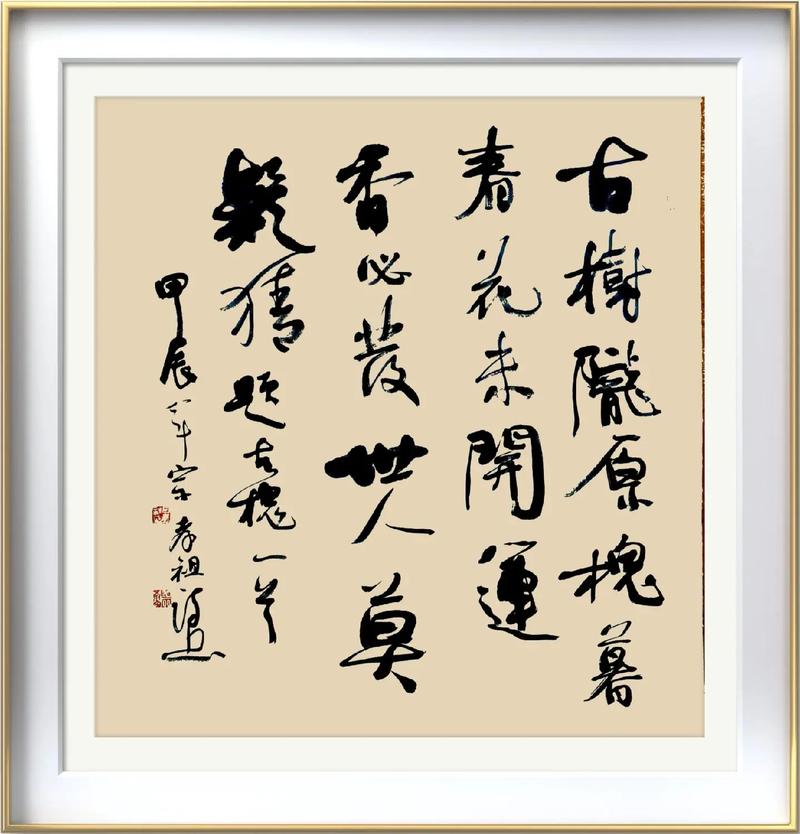 古樹隴原槐暮
春花未開蓮
香必發世人莫
疑猜題古槐一首
甲辰年宋孝祖詩書